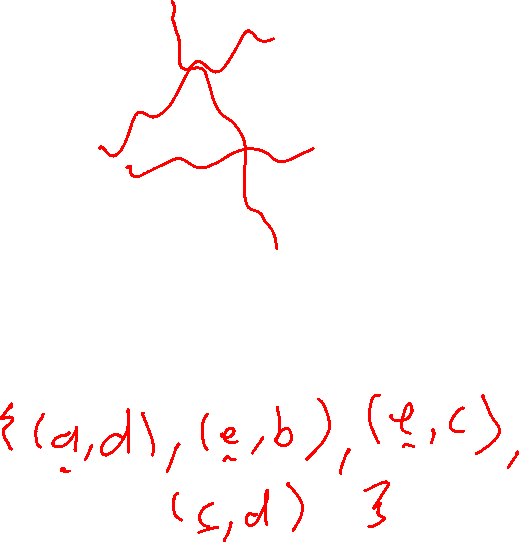 {(a,d), (e,b), (e,c),
(c,d) }